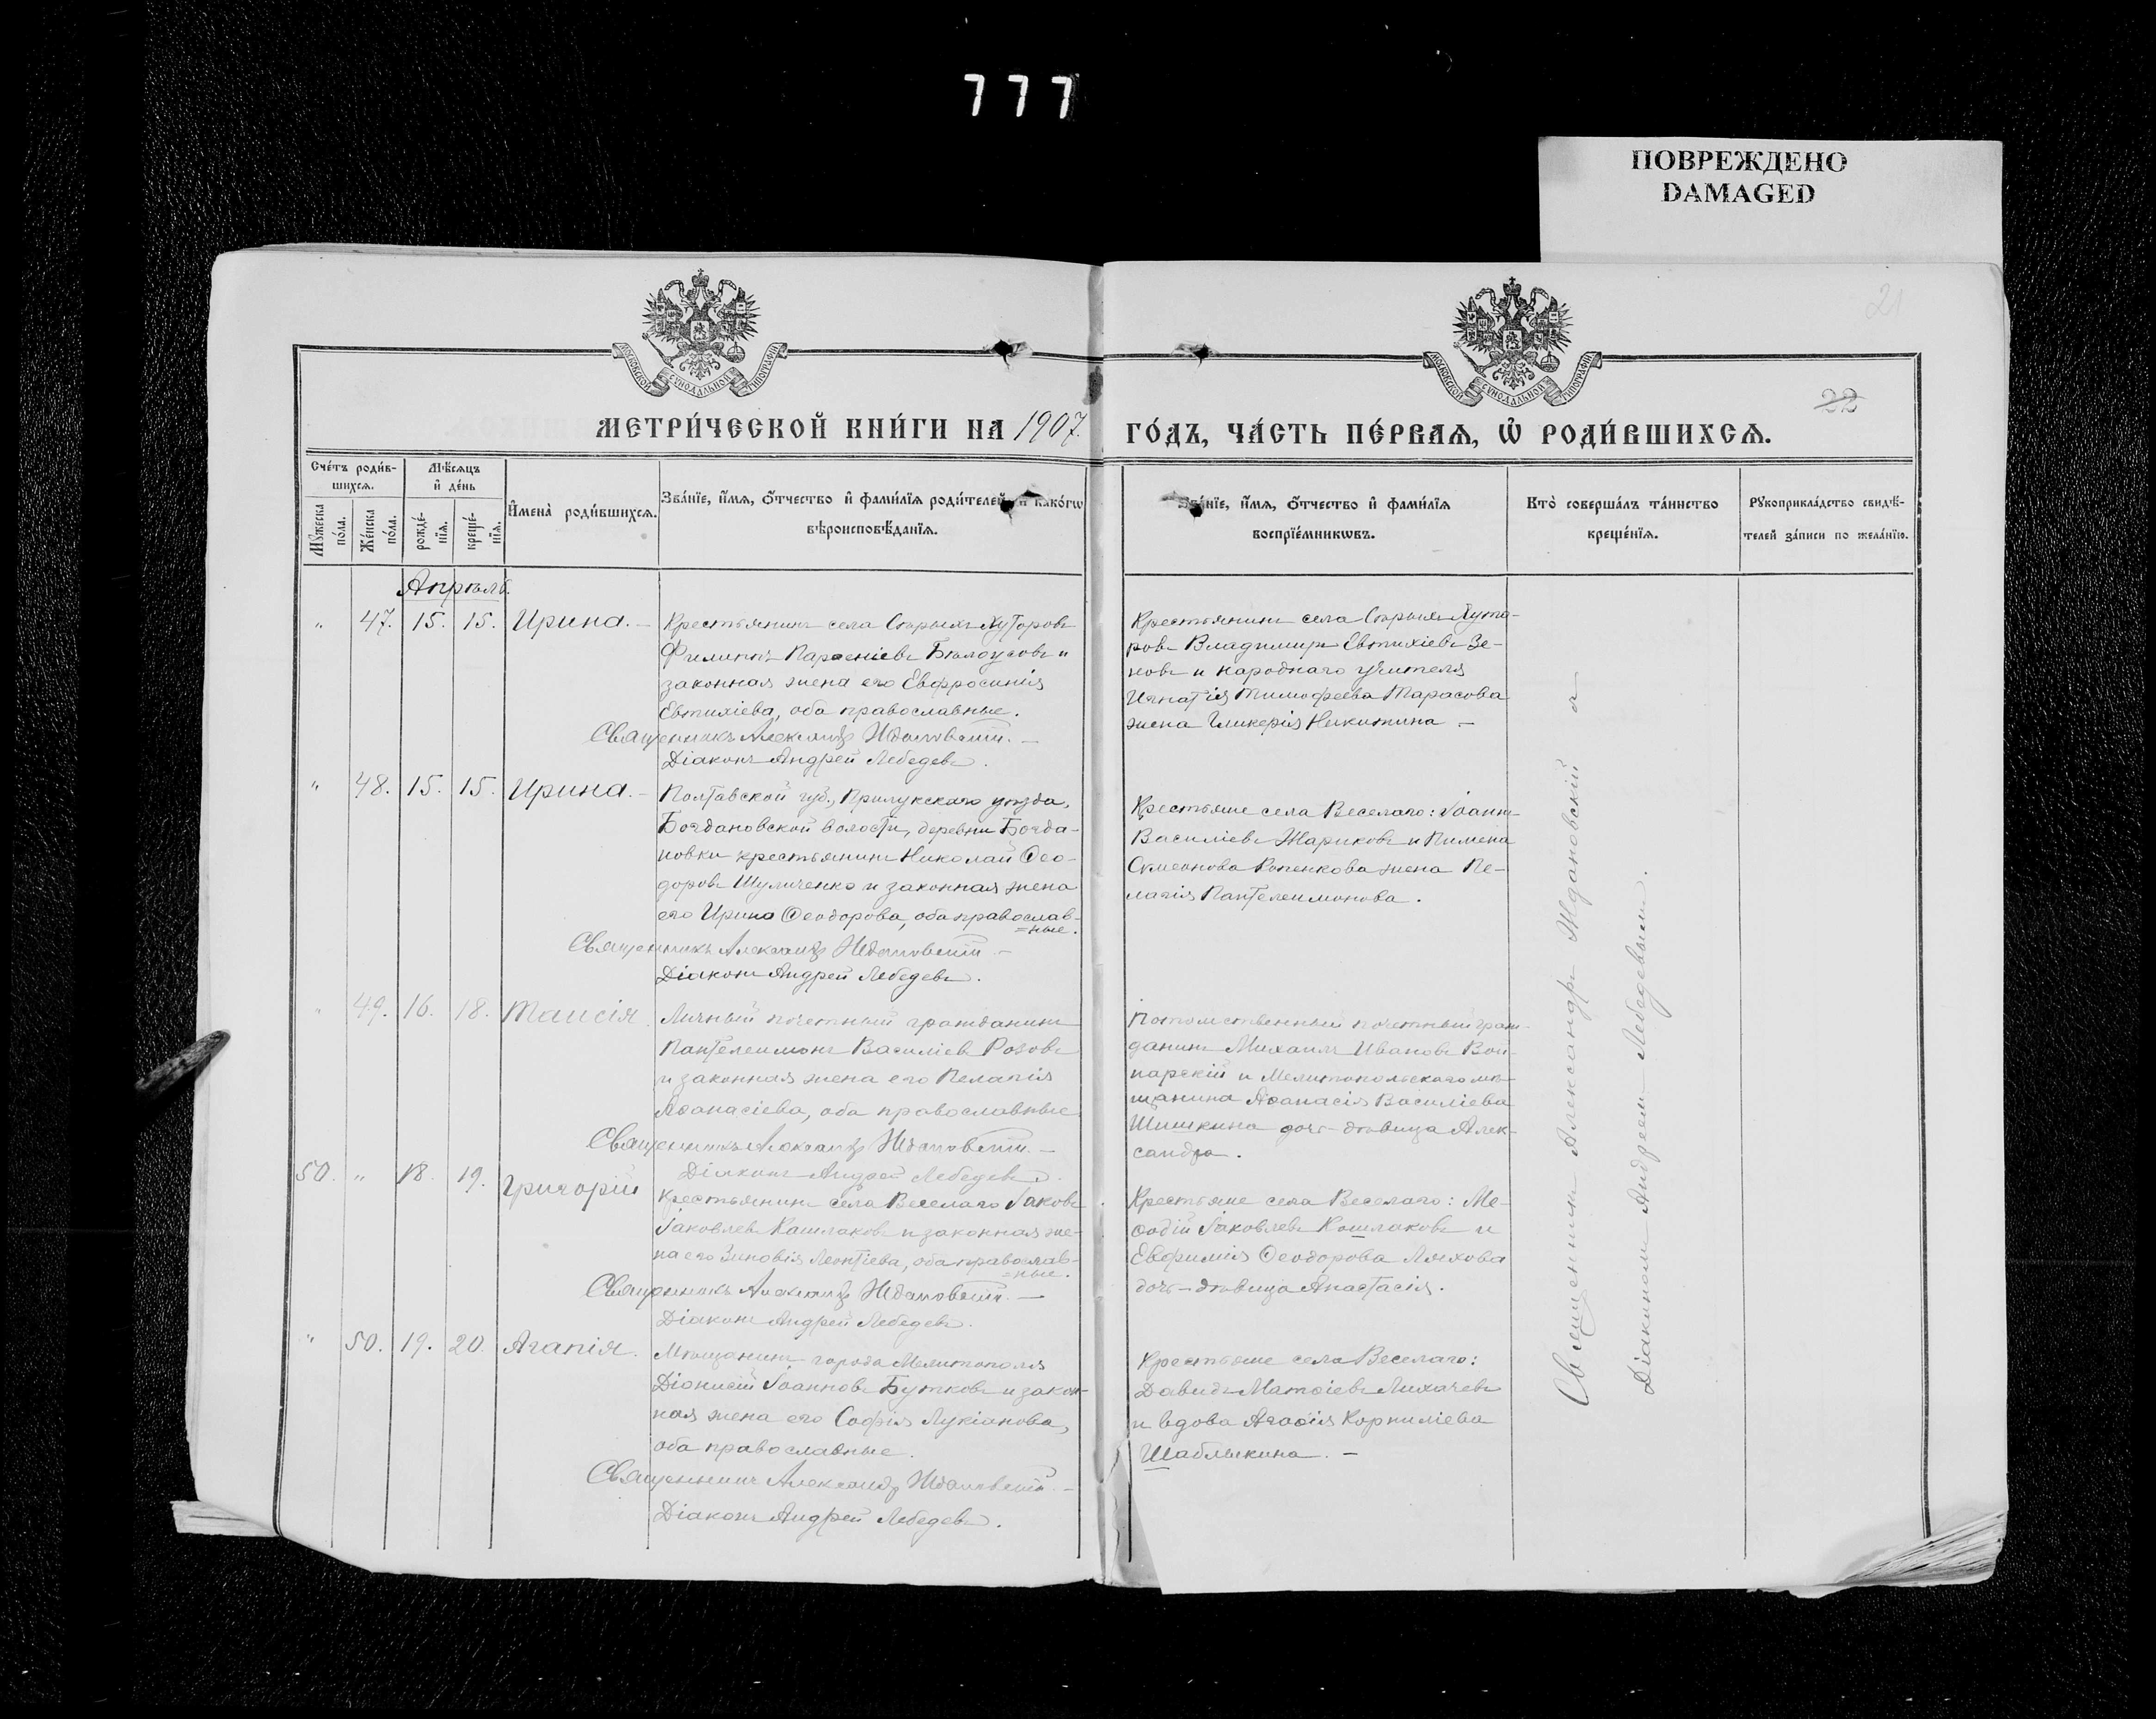 777
ПОВРЕЖДЕНО
DAMAGED
21
22
МОСКОВСКОЙ СѴНОДАЛЬНОЙ ТИПОГРАФІИ
МОСКОВСКОЙ СѴНОДАЛЬНОЙ ТИПОГРАФІИ
МЕТРИ́ЧЕСКОЙ КНИ́ГИ НА 1907.
ГО́ДЪ, ЧА́СТЬ ПЕ́РВАЯ, Ѡ РОДИ́ВШИХСЯ.
Сче́тъ роди́в-
шихся.
Мѣ́сяцъ
и де́нь
Мꙋ́жеска
по́ла.
Же́нска
по́ла.
рожде́-
нїя.
креще́-
нїя.
Имена̀ роди́вшихся.
Зва́нїе, и́мя, о́тчество и фами́лїя роди́телей, и како́гѡ
вѣроисповѣ́данїя.
Зва́нїе, и́мя, о́тчество и фами́лїя
воспрїе́мникѡвъ.
Кто̀ соверша́лъ та́инство
креще́нїя.
Рꙋкоприкла́дство свидѣ́-
телей за́писи по жела́нїю.
Апрѣль.
" 47. 15. 15. Ирина. –
Крестьянинъ села Старыхъ Хуторовъ
Филиппъ Парѳеніевъ Бѣлоусовъ и
законная жена его Евфросинія
Евтихіева, оба православные.
Священникъ Александръ Ждановскій. –
Діаконъ Андрей Лебедевъ.
Крестьянинъ села Старыхъ Хуто-
ровъ Владимиръ Евтихіевъ Зе-
новъ и народнаго учителя
Игнатія Тимофеева Тарасова
жена Гликерія Никитина –
" 48. 15. 15. Ирина. –
Полтавской губ., Прилукскаго уѣзда,
Богдановской волости, деревни Богда-
новки крестьянинъ Николай Ѳео-
доровъ Шуличенко и законная жена
его Ирина Ѳеодорова, оба православ-
=ные.
Священникъ Александръ Ждановскій –
Діаконъ Андрей Лебедевъ.
Крестьяне села Веселаго: Іоаннъ
Василіевъ Жариковъ и Пимена
Сѵмеонова Копенкова жена Пе-
лагія Пантелеимонова.
" 49. 16. 18. Таисія.
Личный почетный гражданинъ
Пантелеимонъ Василіевъ Розовъ
и законная жена его Пелагія
Аѳанасіева, оба православные
Священникъ Александръ Ждановскій. –
Діаконъ Андрей Лебедевъ.
Потомственный почетный граж-
данинъ Михаилъ Ивановъ Вой-
нарскій и Мелитопольскаго мѣ-
щанина Аѳанасія Василіева
Шишкина дочь-дѣвица Алек-
сандра.
50. " 18. 19. Григорій
Крестьянинъ села Веселаго Іаковъ
Іаковлевъ Кашлаковъ и законная же-
на его Зиновія Леонтіева, оба православ-
=ные.
Священникъ Александръ Ждановскій. –
Діаконъ Андрей Лебедевъ.
Крестьяне села Веселаго: Ме-
ѳодій Іаковлевъ Кошлаковъ и
Евфимія Ѳеодорова Ляхова
дочь-дѣвица Анастасія.
" 50. 19. 20. Агапія.
Мѣщанинъ города Мелитополя
Діонисій Іоанновъ Бутковъ и закон-
ная жена его Софія Лукіанова,
оба православные.
Священникъ Александръ Ждановскій –
Діаконъ Андрей Лебедевъ.
Крестьяне села Веселаго:
Давидъ Матѳіевъ Лихачевъ
и вдова Агаѳія Корниліева
Шаблыкина. –
Священникъ Александръ Ждановскій съ
Діакономъ Андреемъ Лебедевымъ.